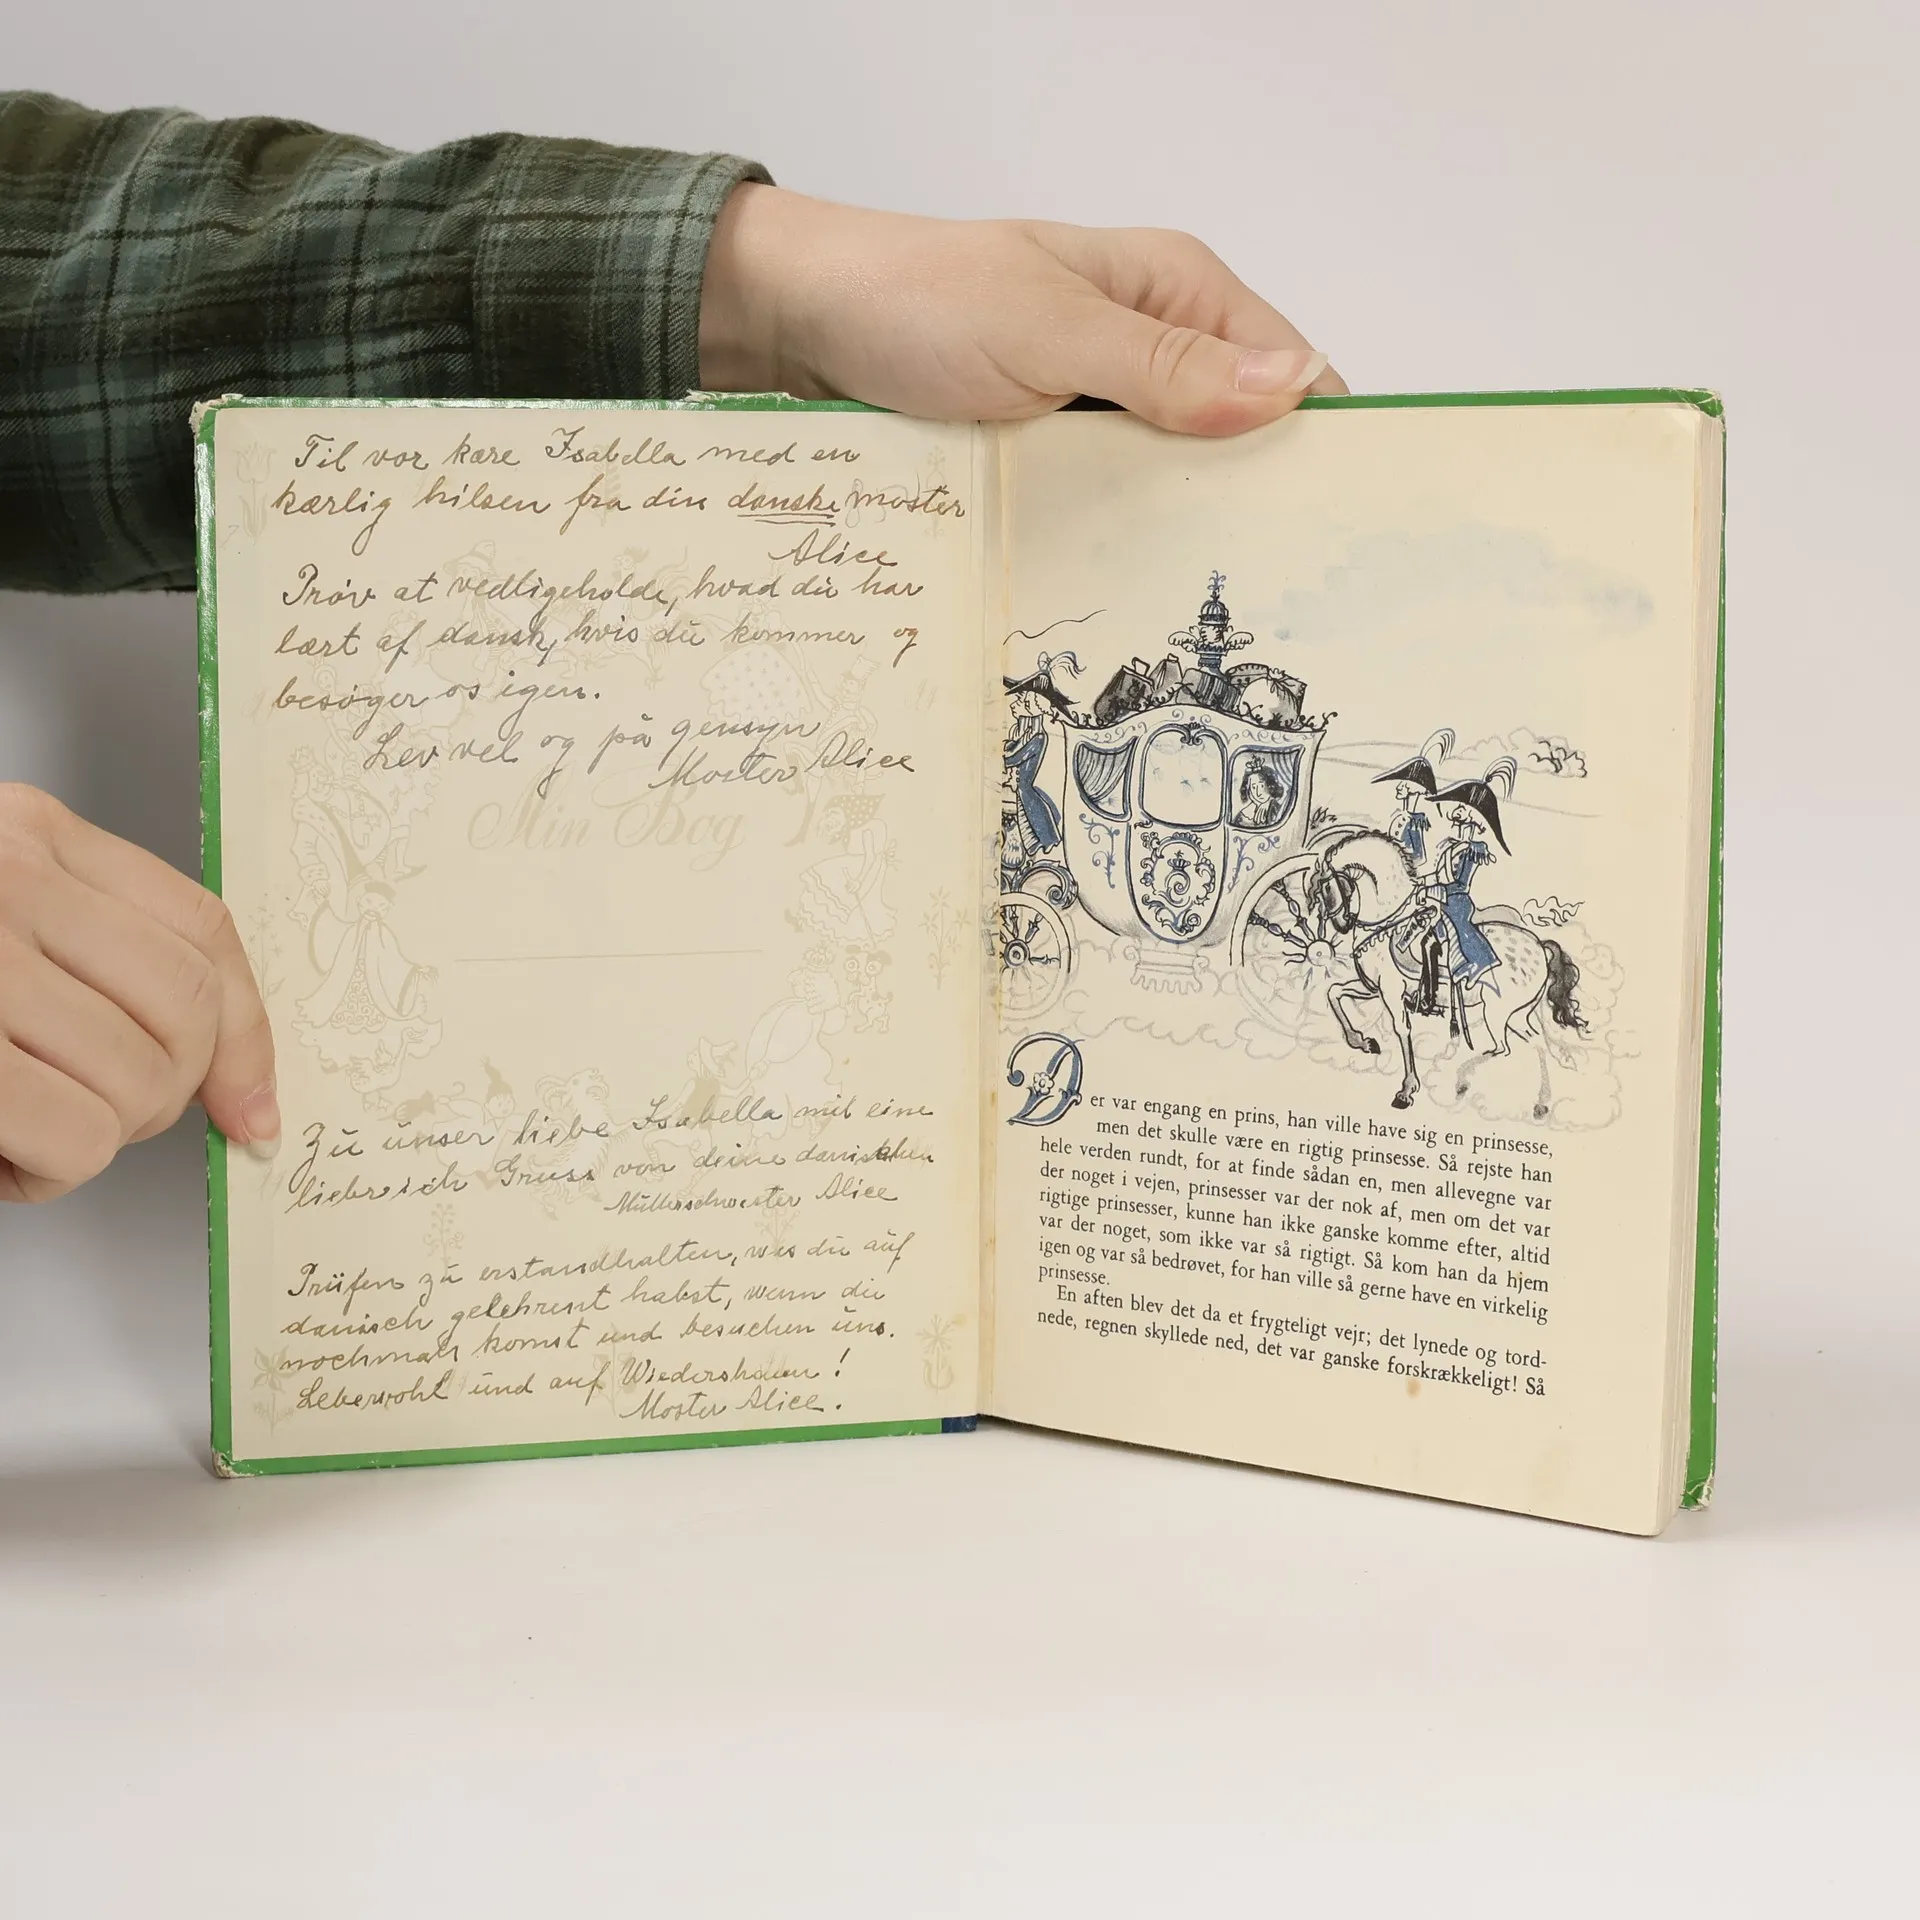 Til vor kære Isabella med en
kærlig hilsen fra din danske moster
Alice
Prøv at vedligeholde, hvad du har
lært af dansk, hvis du kommer og
besøger os igen.
Lev vel og på gensyn
Moster Alice
Min Bog
Zu unser liebe Isabella mit eine
liebr ich Gruss von deine danischen
Mütterschwester Alice
Prüfen zu erstandhalten, was du auf
danisch gelehrent habst, wenn du
nochmals komst und besuchen uns.
Leberwohl und auf Wiedersh !
Moster Alice.
Der var engang en prins, han ville have sig en prinsesse,
men det skulle være en rigtig prinsesse. Så rejste han
hele verden rundt, for at finde sådan en, men allevegne var
der noget i vejen, prinsesser var der nok af, men om det var
rigtige prinsesser, kunne han ikke ganske komme efter, altid
var der noget, som ikke var så rigtigt. Så kom han da hjem
igen og var så bedrøvet, for han ville så gerne have en virkelig
prinsesse.
En aften blev det da et frygteligt vejr; det lynede og tord-
nede, regnen skyllede ned, det var ganske forskrækkeligt! Så